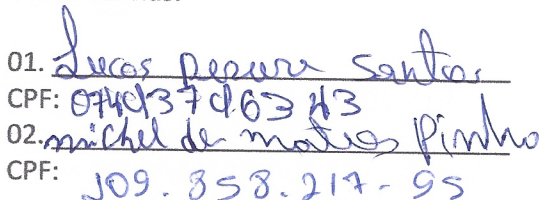 01. Lucos pereira Santos
CPF:
02. michel de matos Pinho
CPF: 109.358.217-95